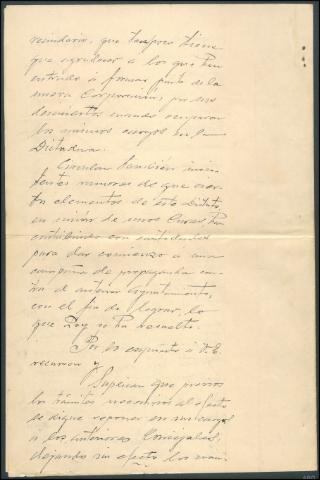 vecindario, que tampoco tiene
que agradecer a los que han
entrado a formar parte de la
nueva Corporación, por sus
desaciertos cuando ocuparon
los mismos cargos en la
Dictadura.
Circulan también insis-
tentes rumores de que cier-
tos elementos de este Distrito
en unión de unos Curas han
contribuido con cantidades
para dar comienzo a una
campaña de propaganda con-
tra de anterior Ayuntamiento,
con el fin de lograr, lo
que hoy se ha resuelto.
Por lo expuesto á V. E.
recurren y
Suplican que previos
los trámites necesarios al efecto
se digne reponer en sus cargos
a los anteriores Concejales,
dejando sin efecto los nom-